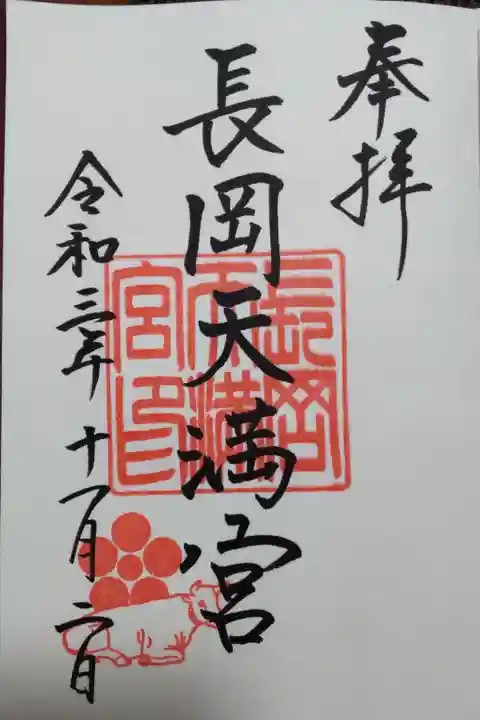 奉拝
長岡天満宮
長岡天満宮印
令和三年十一月二日